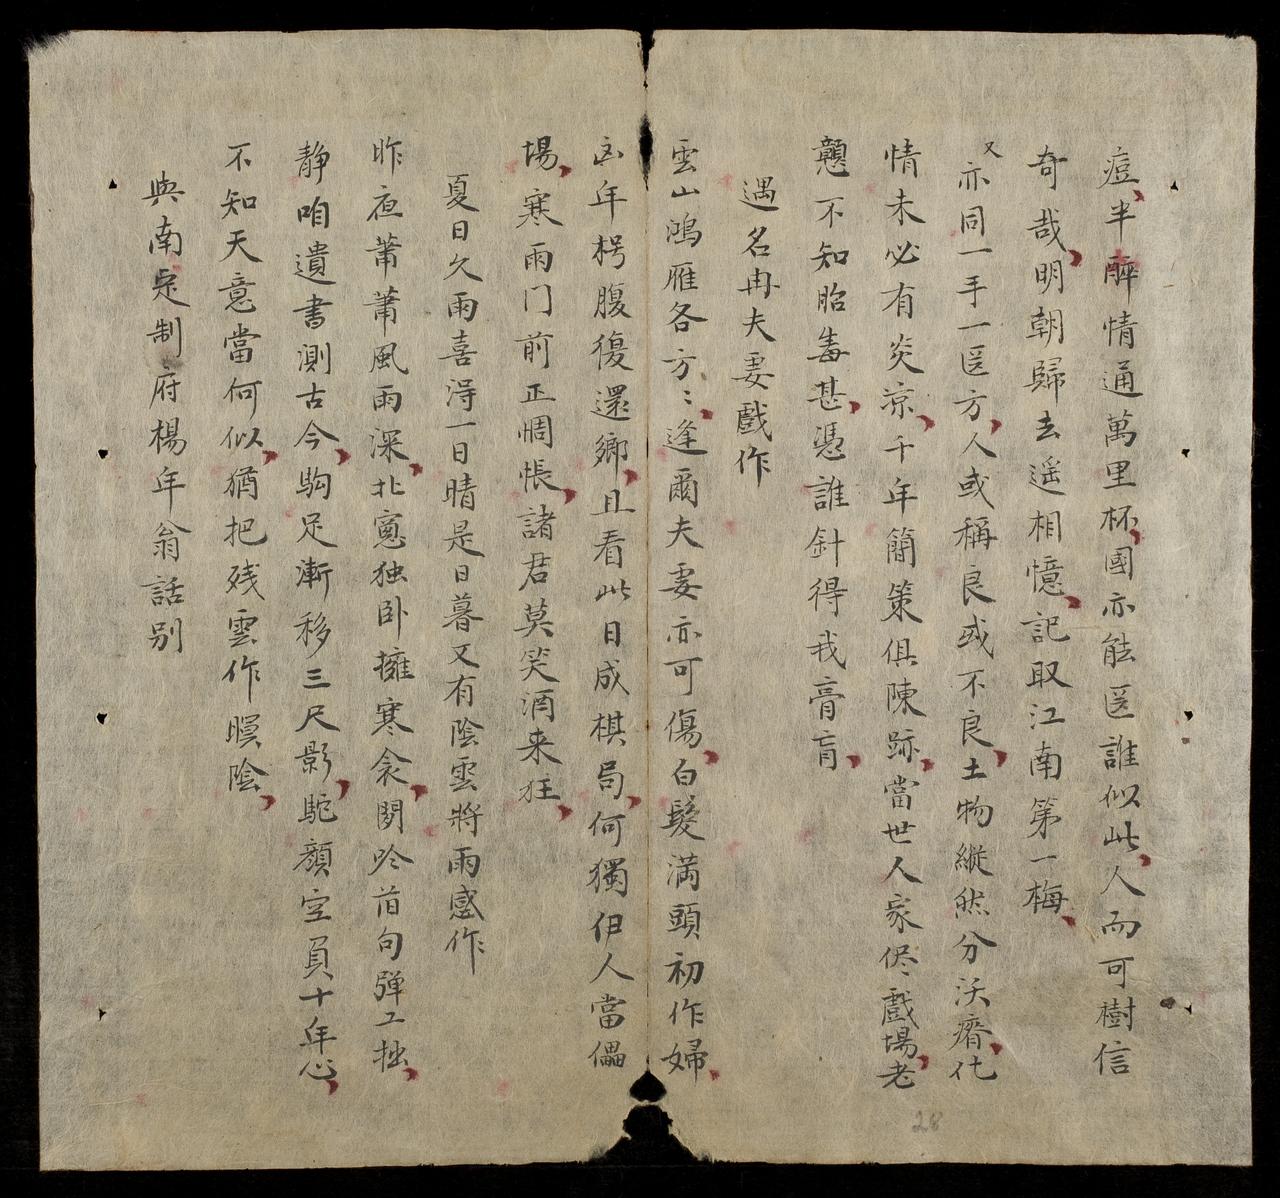 痘半酔情通萬里杯國亦能医誰似此人而可樹信
奇哉明朝歸去遥相憶記取江南第一梅
又
亦同一手一医方人或稱良或不良土物縱然分沃瘠化
情未必有炎凉千年簡策俱陳跡當世人家侭戲場老
戇不知貽毒甚憑誰針得我膏肓
遇名冉夫妻戲作
雲山鴻雁各方〻逢爾夫妻亦可傷白髮满頭初作婦
凶年枵腹復還鄉且看此日成棋局何獨伊人當儡
場寒雨门前正惆悵諸君莫笑酒来狂
夏日久雨喜淂一日晴是日暮又有陰雲將雨感作
昨夜蕭蕭風雨深北窻独卧擁寒衾閑吟首句彈工拙
静咱遺書測古今駒足漸移三尺影駝顏空負十年心
不知天意當何似猶把残雲作暝陰
與南㝎制府楊年翁話别
28